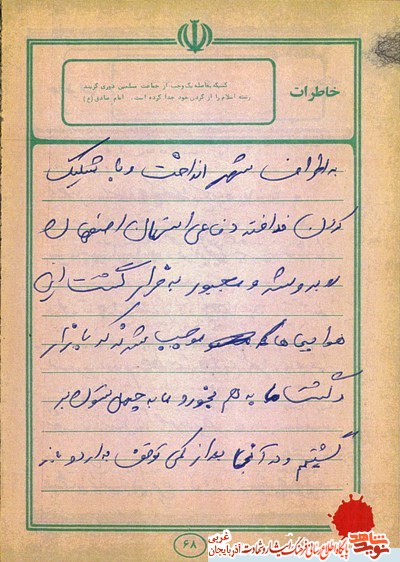 خاطرات
کسیکه بفاصله یک وجب از جماعت مسلمین دوری گزیند
رشته اسلام را از گردن خود جدا کرده است. امام صادق (ع)
به اطراف شهر انداخت و با شلیک
کردن پدافند دفاعی استان اصفهان
روبرو شد و مجبور به فرار گشت این
هواپیماها موجب شدند که بازار
گشت ما به هم بخورد و ما به چهل ستون بر
گشتیم و در آنجا بعد از کمی توقف به اردو باز
۶۸
نوید شاهد
پایگاه اطلاع رسانی فرهنگ ایثار و شهادت آذربایجان غربی
navideshahed.com